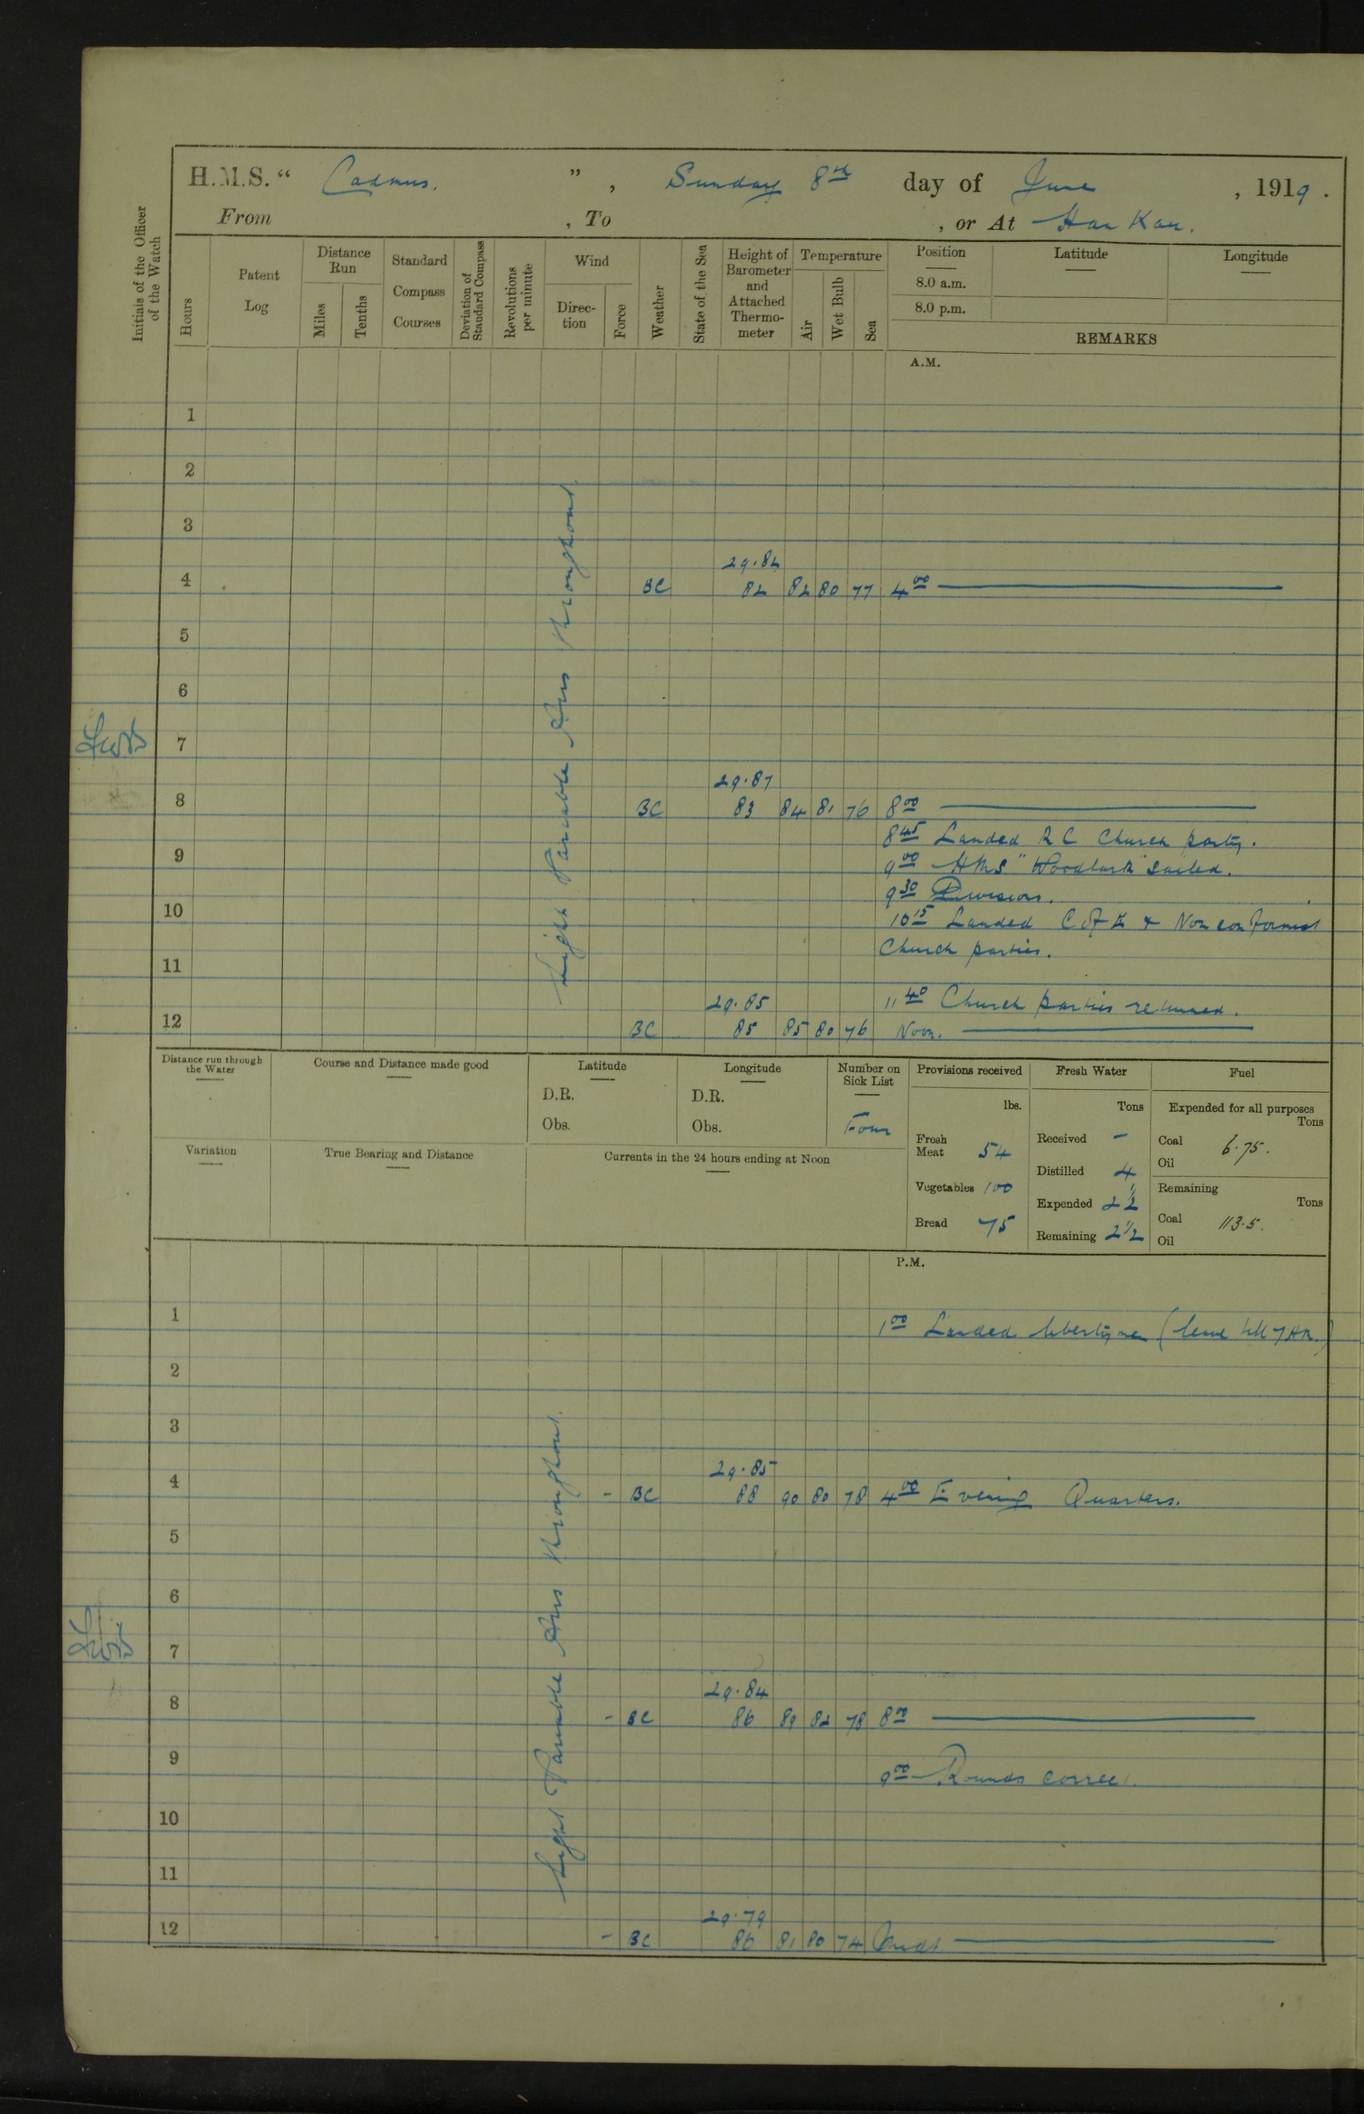 H.M.S. “ Cadmus. ” , Sunday 8th day of June , 1919 .
From , To , or At Han Kau.
Initials of the Officer of the Watch
Hours
Patent Log
Distance Run
Miles
Tenths
Standard Compass Courses
Deviation of Standard Compass
Revolutions per minute
Wind
Direction
Force
Weather
State of the Sea
Height of Barometer and Attached Thermometer
Temperature
Air
Wet Bulb
Sea
Position
8.0 a.m.
8.0 p.m.
Latitude
Longitude
REMARKS
A.M.
1
2
3
29.84
4 BC 82 82 80 77 4 00
5
6
7
29.87
8 BC 83 84 81 76 8 00
8 45 Landed R C Church party.
9
9 00 HMS "Woodlark" sailed.
9 30 Divisions.
10
10 15 Landed C of E & Nonconformist
Church parties.
11
29.85 11 40 Church parties returned.
12 BC 85 85 80 76 Noon.
Light Variable Airs throughout
Distance run through the Water
Course and Distance made good
Latitude
D.R.
Obs.
Longitude
D.R.
Obs.
Number on Sick List
Four
Variation
True Bearing and Distance
Currents in the 24 hours ending at Noon
Provisions received
lbs.
Fresh Meat 54
Vegetables 100
Bread 75
Fresh Water
Tons
Received -
Distilled 4
Expended 2 1/2
Remaining 2 1/2
Fuel
Expended for all purposes
Tons
Coal 6.75.
Oil
Remaining
Tons
Coal 113.5.
Oil
P.M.
1
1 00 Landed libertymen (leave till 7 AM.)
2
3
29.85
4 - BC 88 90 80 78 4 00 Evening Quarters.
5
6
7
29.84
8 - BC 86 89 82 78 8 00
9
9 00 Rounds correct.
10
11
29.79
12 - BC 86 81 80 74 Mndt
Light Variable Airs throughout.